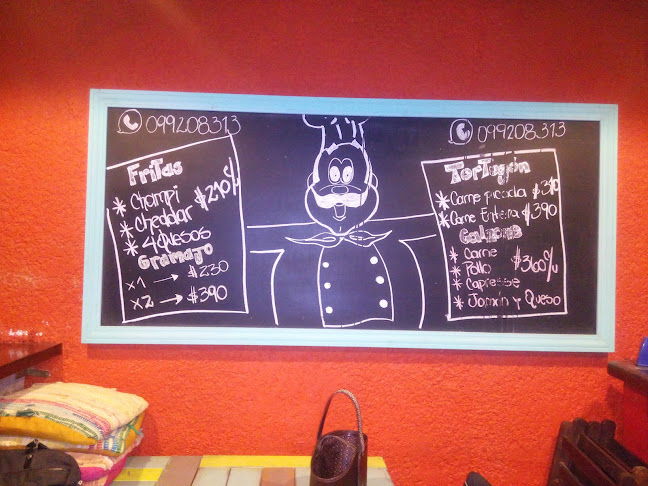 099208313
Fritas
* Champi
* Cheddar $210 c/u
* 4 Quesos
Gramajo
x1 → $230
x2 → $390
099208313
Tortugón
* Carne picada $310
* Carne Entera $390
Calzone
* Carne
* Pollo $360 c/u
* Capresse
* Jamón y Queso